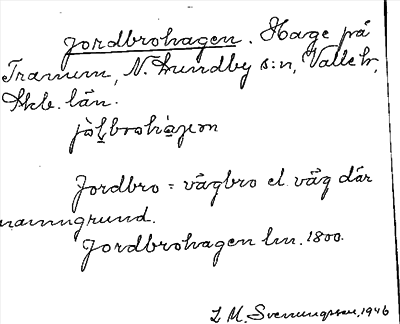 Jordbrohagen. Hage på
Tranum, N. Lundby s:n, Valle hr,
Skb. län.
jòḷbrohàgen
Jordbro = vägbro el. väg där
namngrund.
Jordbrohagen lm. 1800.
L. M. Svenungsson, 1946